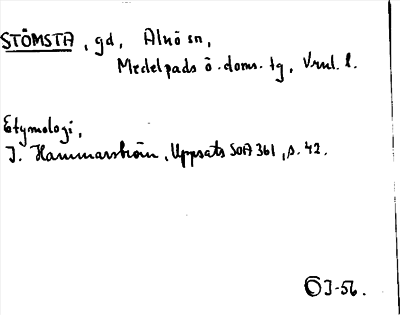 STÖMSTA, gd, Alnö sn,
Medelpads ö. doms. tg, Vrnl. l.
Etymologi,
J. Hammarström, Uppsats SOA 361, s. 42.
OJ-56.